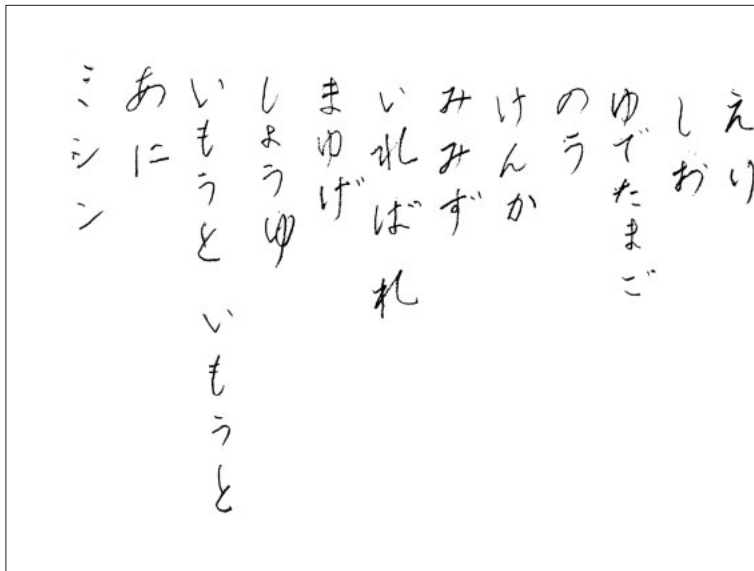 えり
しお
ゆでたまご
のう
けんか
みみず
いればれ
まゆげ
しょうゆ
いもうと いもうと
あに
ミシン